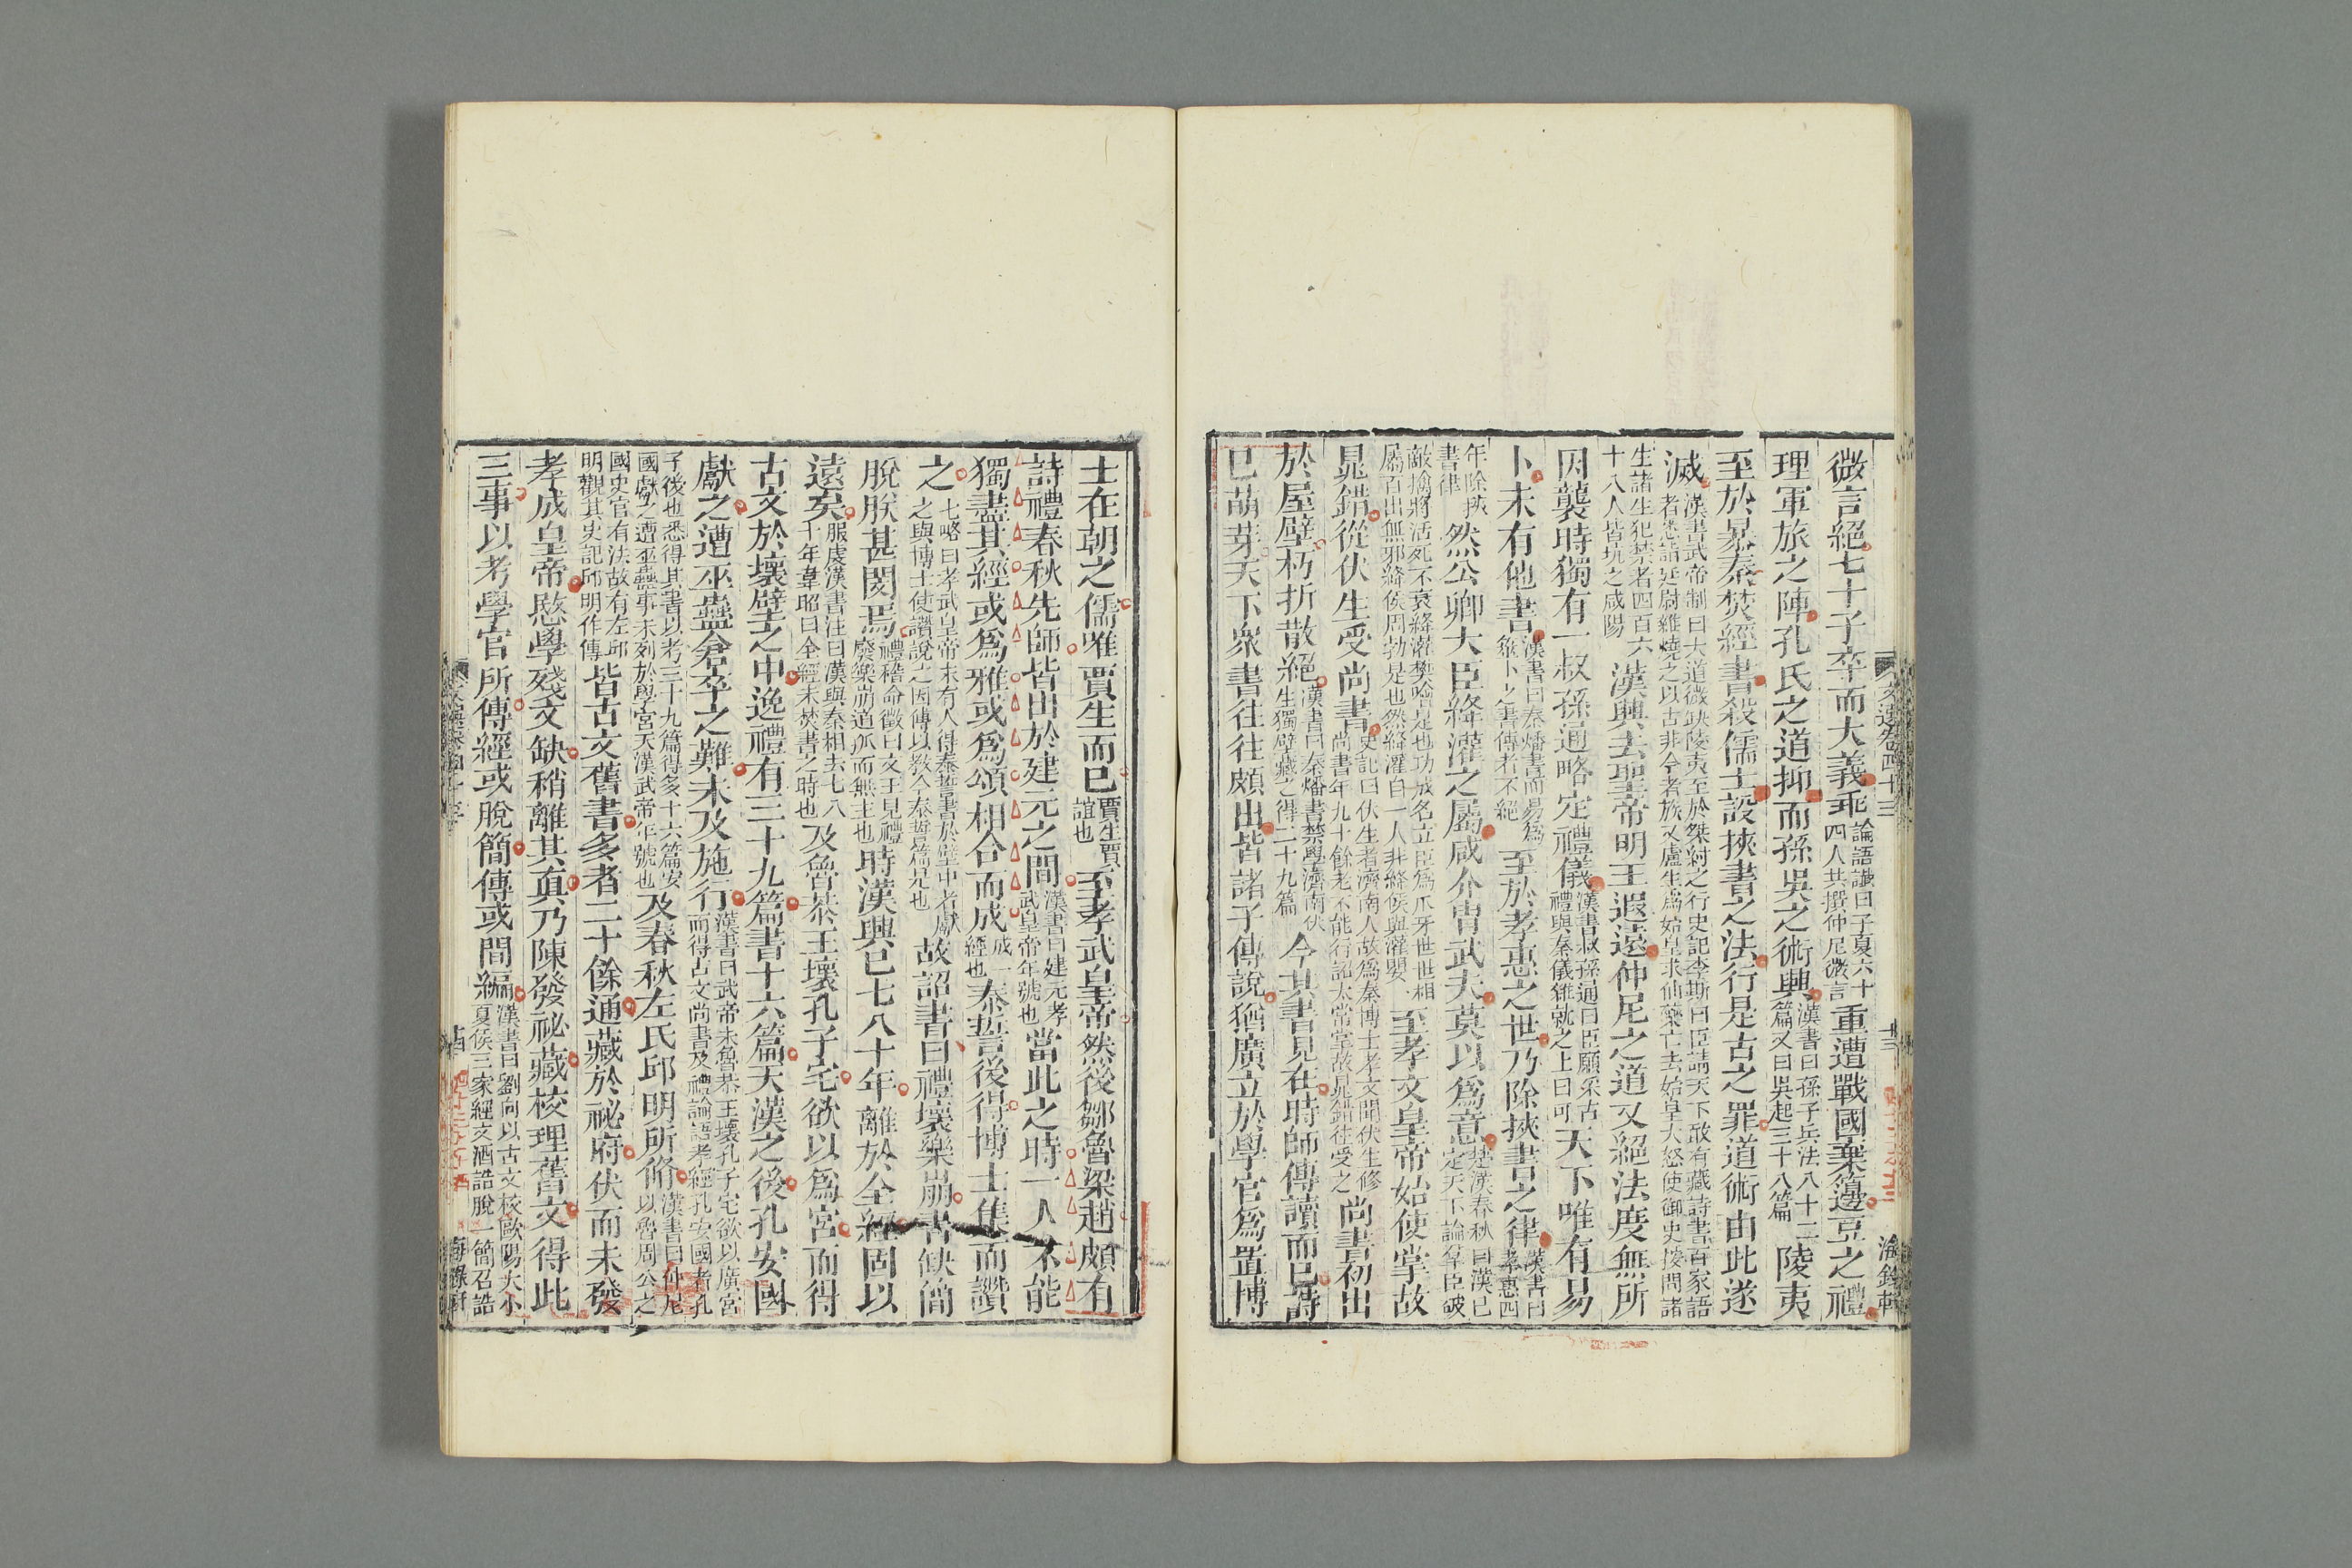 文選卷四十三 十三 海錄軒
微言絕七十子卒而大義乖論語讖曰子夏六十四人共撰仲尼微言重遭戰國棄籩豆之禮
理軍旅之陣孔氏之道抑而孫吳之術興漢書曰孫子兵法八十二篇又曰吳起三十八篇陵夷
至於暴秦焚經書殺儒士設挾書之法行是古之罪道術由此遂
滅漢書武帝制曰大道微缺陵夷至於桀紂之行史記李斯曰臣請天下敢有藏詩書百家語者悉詣廷尉雜燒之以古非今者族又盧生為始皇求仙藥亡去始皇大怒使御史按問諸
生諸生犯禁者四百六十八人皆坑之咸陽漢興去聖帝明王遐遠仲尼之道又絕法度無所
因襲時獨有一叔孫通略定禮儀漢書叔孫通曰臣願采古禮與秦儀雜就之上曰可天下唯有易
卜未有他書漢書曰秦燔書而易為筮卜之書傳者不絕至於孝惠之世乃除挾書之律漢書曰孝惠四
年除挾書律然公卿大臣絳灌之屬咸介胄武夫莫以為意楚漢春秋曰漢已定天下論羣臣破
敵擒將活死不衰絳灌樊噲是也功成名立臣為爪牙世世相屬百出無邪絳侯周勃是也然絳灌自一人非絳侯與灌嬰至孝文皇帝始使掌故
晁錯從伏生受尚書史記曰伏生者濟南人故為秦博士孝文聞伏生修尚書年九十餘老不能行詔太常掌故晁錯往受之尚書初出
於屋壁朽折散絕漢書曰秦燔書禁學濟南伏生獨壁藏之得二十九篇今其書見在時師傳讀而已詩
已萌芽天下衆書往往頗出皆諸子傳說猶廣立於學官為置博
士在朝之儒唯賈生而已賈生賈誼也至孝武皇帝然後鄒魯梁趙頗有
詩禮春秋先師皆出於建元之間漢書曰建元孝武皇帝年號也當此之時一人不能
獨盡其經或為雅或為頌相合而成成一經也泰誓後得博士集而讚
之七略曰孝武皇帝末有人得泰誓書於壁中者獻之與博士使讚說之因傳以教今泰誓篇是也故詔書曰禮壞樂崩書缺簡
脫朕甚閔焉禮稽命徵曰文王見禮廢樂崩道孤而無主也時漢興已七八十年離於全經固以
遠矣服虔漢書注曰漢與秦相去七八十年韋昭曰全經未焚書之時也及魯恭王壞孔子宅欲以為宮而得
古文於壞壁之中逸禮有三十九篇書十六篇天漢之後孔安國
獻之遭巫蠱倉卒之難未及施行漢書曰武帝末魯恭王壞孔子宅欲以廣宮而得古文尚書及禮論語孝經孔安國者孔
子後也悉得其書以考二十九篇得多十六篇安國獻之遭巫蠱事未列於學宮天漢武帝年號也及春秋左氏邱明所脩漢書曰仲尼以魯周公之
國史官有法故有左邱明觀其史記邱明作傳皆古文舊書多者二十餘通藏於祕府伏而未發
孝成皇帝愍學殘文缺稍離其真乃陳發祕藏校理舊文得此
三事以考學官所傳經或脫簡傳或間編漢書曰劉向以古文校歐陽大小夏侯三家經文酒誥脫一簡召誥